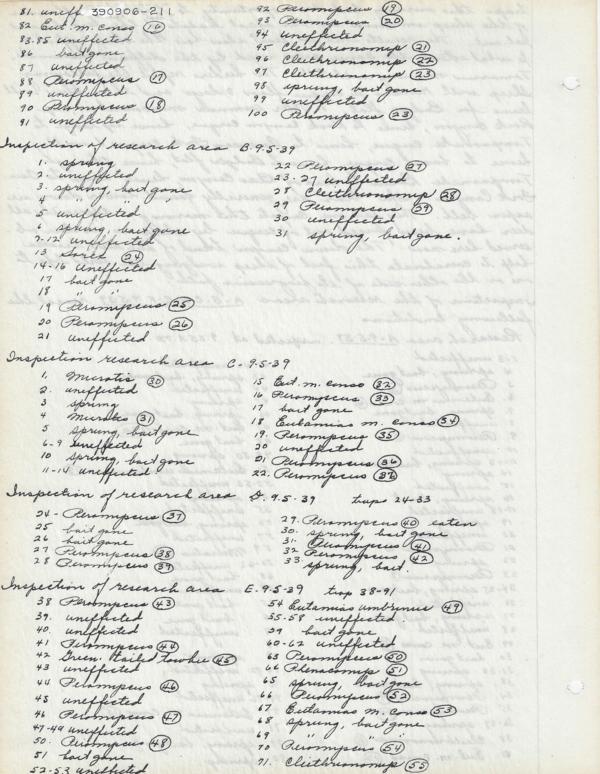 81. uneff. 390906-211
82 Eut. m. conso (16)
83.85 uneffected
86 bait gone
87 uneffected
88 Peromyscus (17)
89 uneffected
90 Peromyscus (18)
91 uneffected
92 Peromyscus (19)
93 Peromyscus (20)
94 uneffected
95 Cleithrionomys (21)
96 Cleithrionomys (22)
97 Cleithrionomys (23)
98 sprung, bait gone
99 uneffected
100 Peromyscus (23)
Inspection of research area B. 9-5-39
1. sprung
2. uneffected
3. sprung, bait gone
4 " " "
5 uneffected
6 sprung, bait gone
7-12 uneffected
13 Sorex (24)
14-16 uneffected
17 bait gone
18 " "
19 Peromyscus (25)
20 Peromyscus (26)
21 uneffected
22 Peromyscus (27)
23-27 uneffected
28 Cleithrionomys (28)
29 Peromyscus (29)
30 uneffected
31 sprung, bait gone.
Inspection research area C. 9-5-39
1. Microtis (30)
2. uneffected
3 sprung
4 Microtes (31)
5 sprung, bait gone
6-9 uneffected
10 sprung, bait gone
11-14 uneffected
15 Eut. m. conso (32)
16 Peromyscus (33)
17 bait gone
18 Eutamias m. conso (34)
19. Peromyscus (35)
20 uneffected
21 Peromyscus (36)
22. Peromyscus (36)
Inspection of research area D. 9-5-39 traps 24-33
24- Peromyscus (37)
25 bait gone
26 bait gone
27 Peromyscus (38)
28 Peromyscus (39)
29. Peromyscus (40) eaten
30. sprung, bait gone
31. Peromyscus (41)
32 Peromyscus (42)
33 sprung, bait.
Inspection of research area E. 9-5-39 trap 38-91
38 Peromyscus (43)
39. uneffected
40. uneffected
41 Peromyscus (44)
42 Green. tailed towhee (45)
43 uneffected
44 Peromyscus (46)
45 uneffected
46 Peromyscus (47)
47-49 uneffected
50. Peromyscus (48)
51 bait gone
52-53 uneffected
54 Eutamias umbrinus (49)
55-58 uneffected
59 bait gone
60-62 uneffected
63 Peromyscus (50)
64 Phenacomys (51)
65 sprung, bait gone
66 Peromyscus (52)
67 Eutamias m. conso (53)
68 sprung, bait gone
69 " " "
70 Peromyscus (54)
71. Cleithrionomys (55)